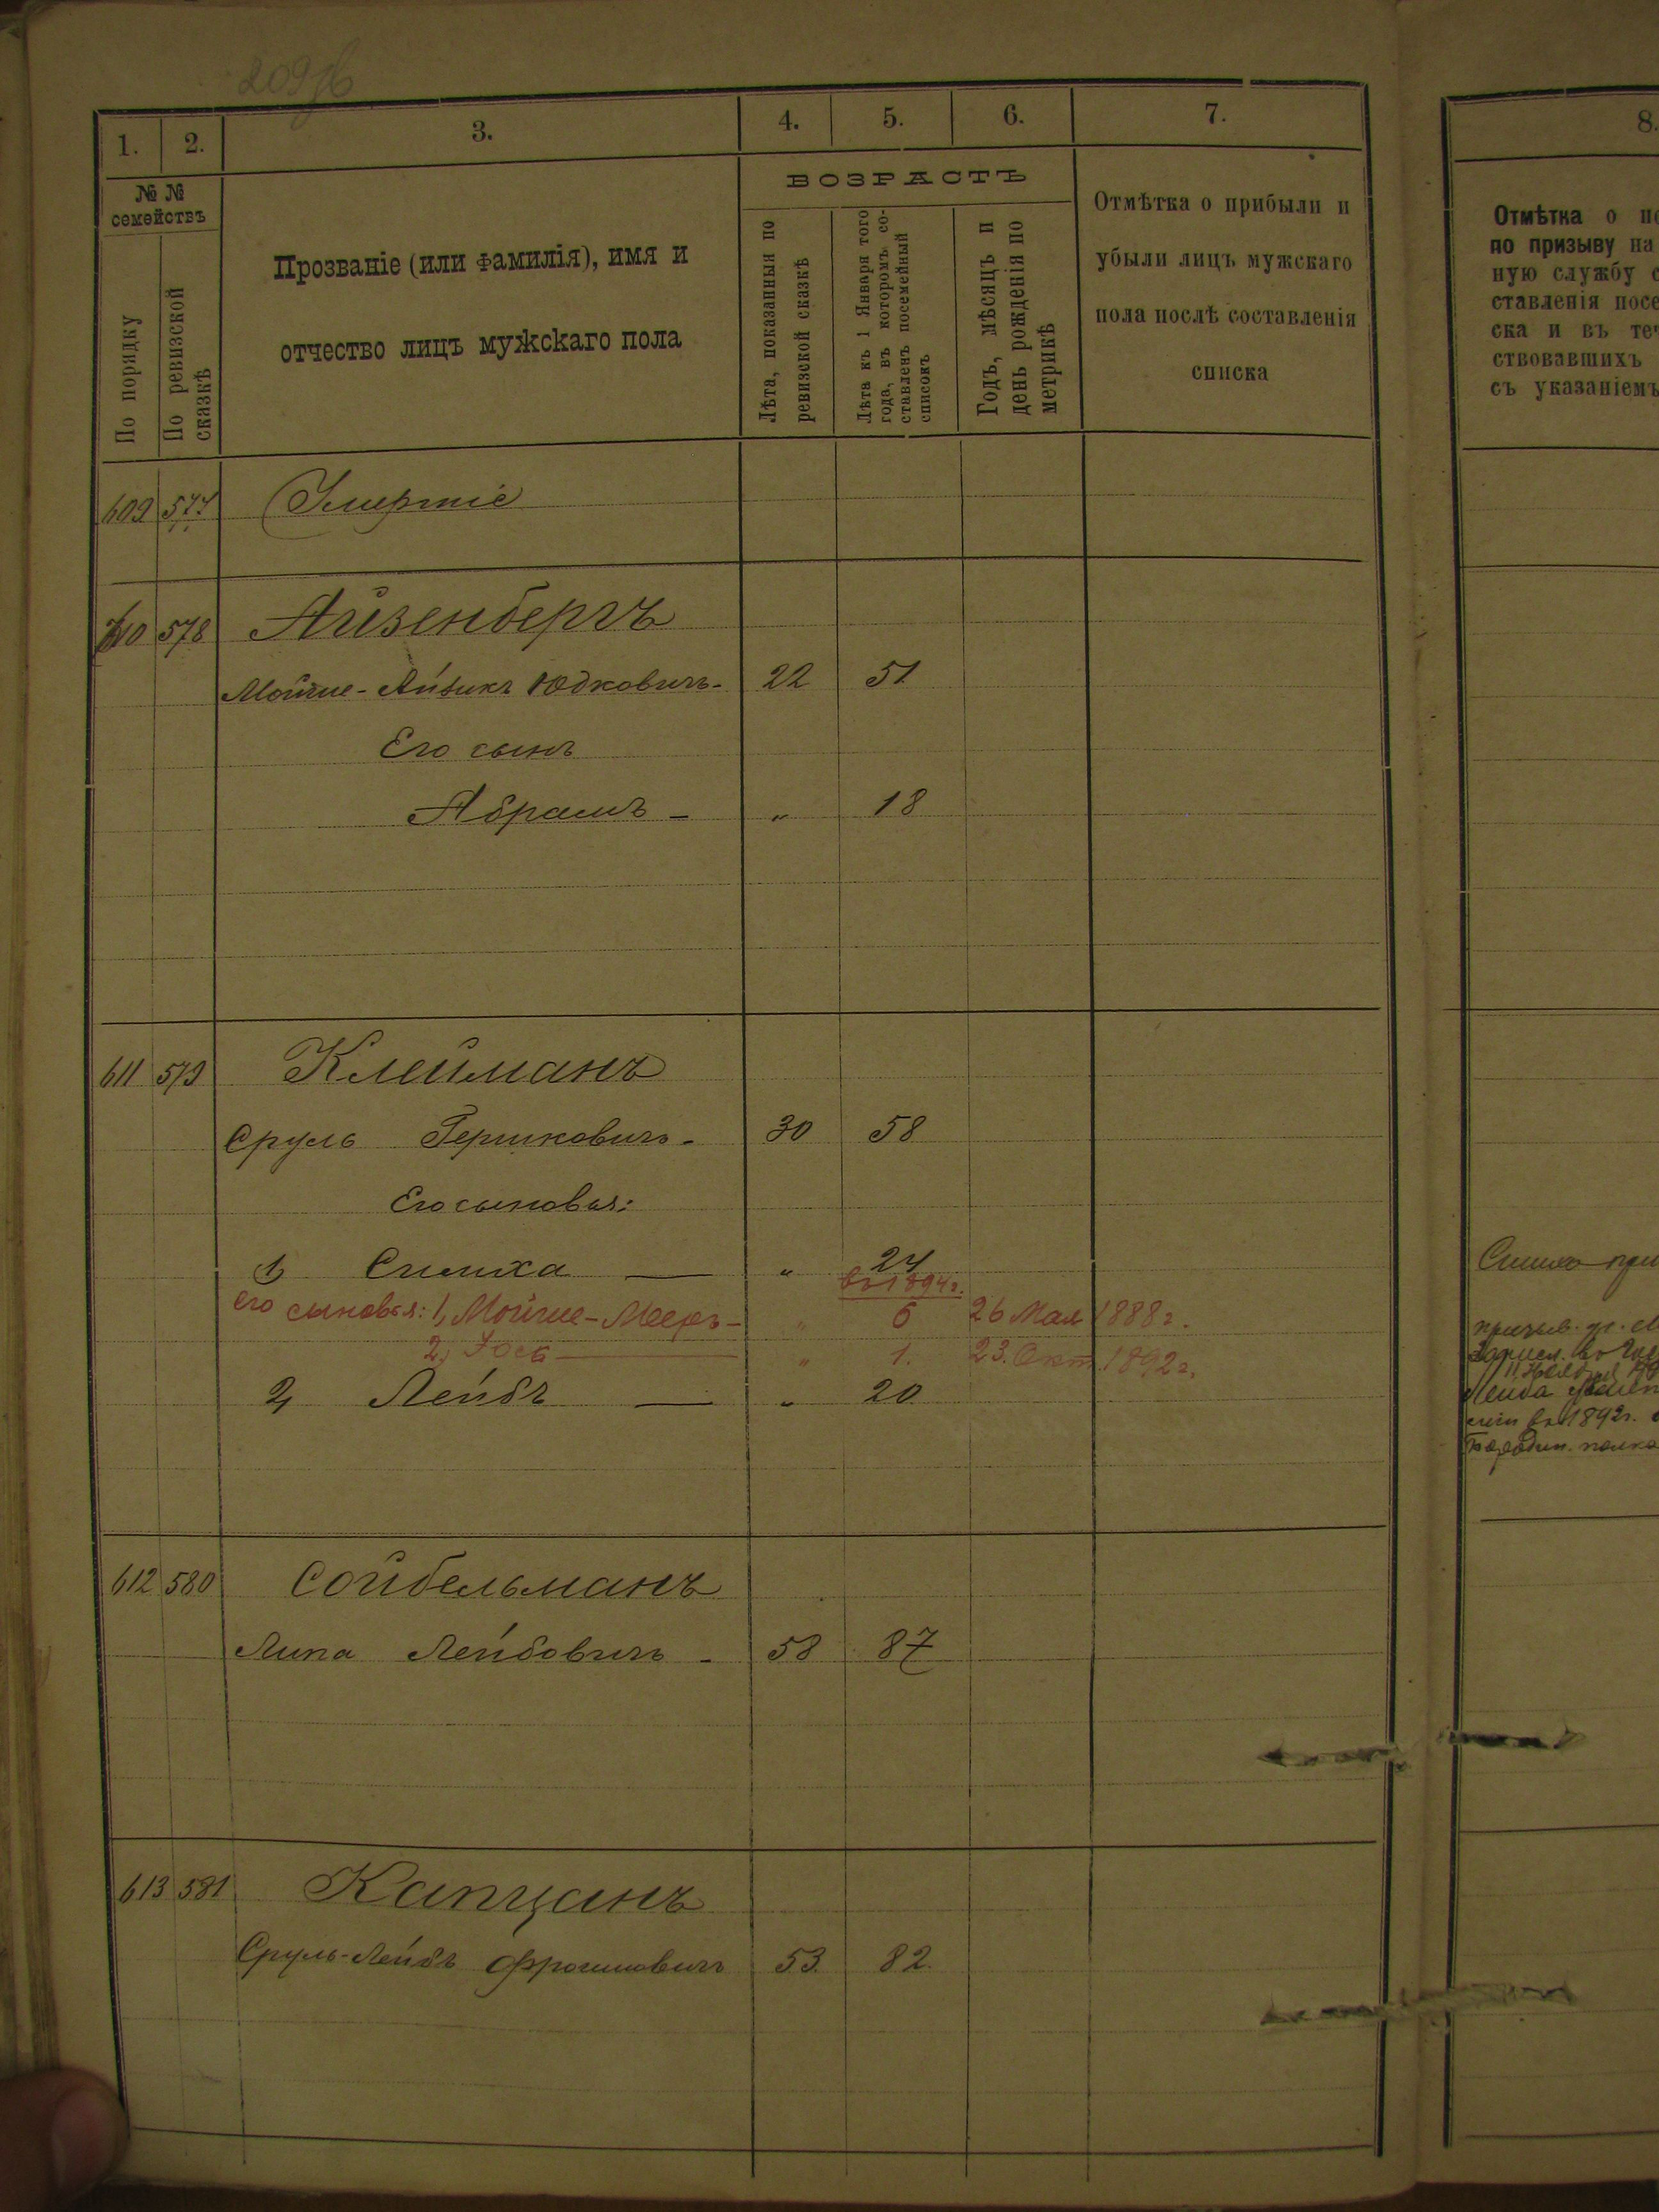 209
1. 2. 3. 4. 5. 6. 7.
№ №
семействъ
По порядку
По ревизской сказкѣ
Прозваніе (или фамилія), имя и
отчество лицъ мужскаго пола
ВОЗРАСТЪ
Лѣта, показанныя по
ревизской сказкѣ
Лѣта къ 1 Января того
года, въ которомъ со-
ставленъ посемейный
списокъ
Годъ, мѣсяцъ и
день рожденія по
метрикѣ
Отмѣтка о прибыли и
убыли лицъ мужскаго
пола послѣ составленія
списка
609 577 Умершіе
610 578 Айзенбергъ
Мойше-Айзикъ Юдковичъ - 22 51
Его сынъ
Абрамъ - " 18
611 579 Клейманъ
Сруль Гершковичъ - 30 58
Его сыновья:
1) Симха — " 24
въ 1894 г.
Его сыновья: 1, Мойше-Мееръ - " 5 26 Мая 1888 г.
2, Іось — " 1. 23. Окт. 1892 г.
2, Лейбъ — " 20
612 580 Сойбельманъ
Липа Лейбовичъ - 58 87
613 581 Капцанъ
Сруль-Лейбъ Фроимовичъ 53. 82.
8.
Отмѣтка о
по призыву на
ную службу
ставленія посе
ска и въ те
ствовавшихъ
съ указаніемъ
Симха
Лейба
въ 1892 г.